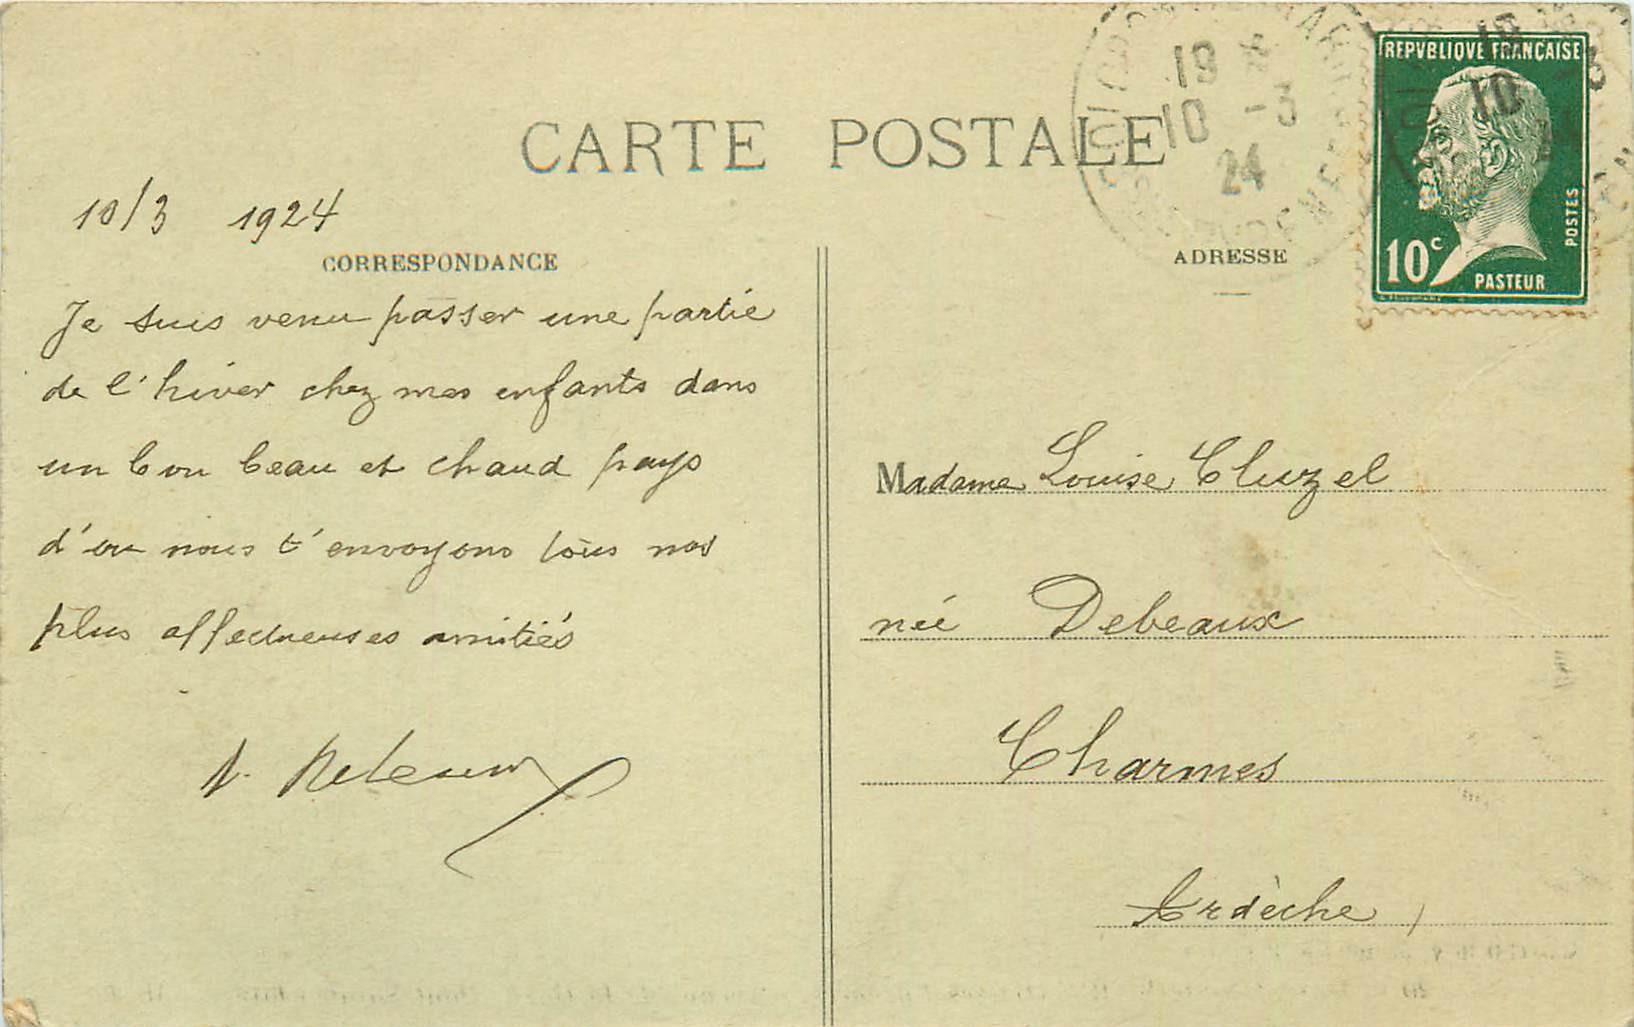 CARTE POSTALE
10/3 1924
CORRESPONDANCE
Je suis venu passer une partie
de l'hiver chez mes enfants dans
un bon beau et chaud pays
d'ou nous t'envoyons tous nos
plus affectueuses amitiés
REPVBLIQVE FRANÇAISE
10c
POSTES
PASTEUR
19
10 -3
24
ADRESSE
Madame Louise Cluzel
née Debeaux
Charmes
Ardèche